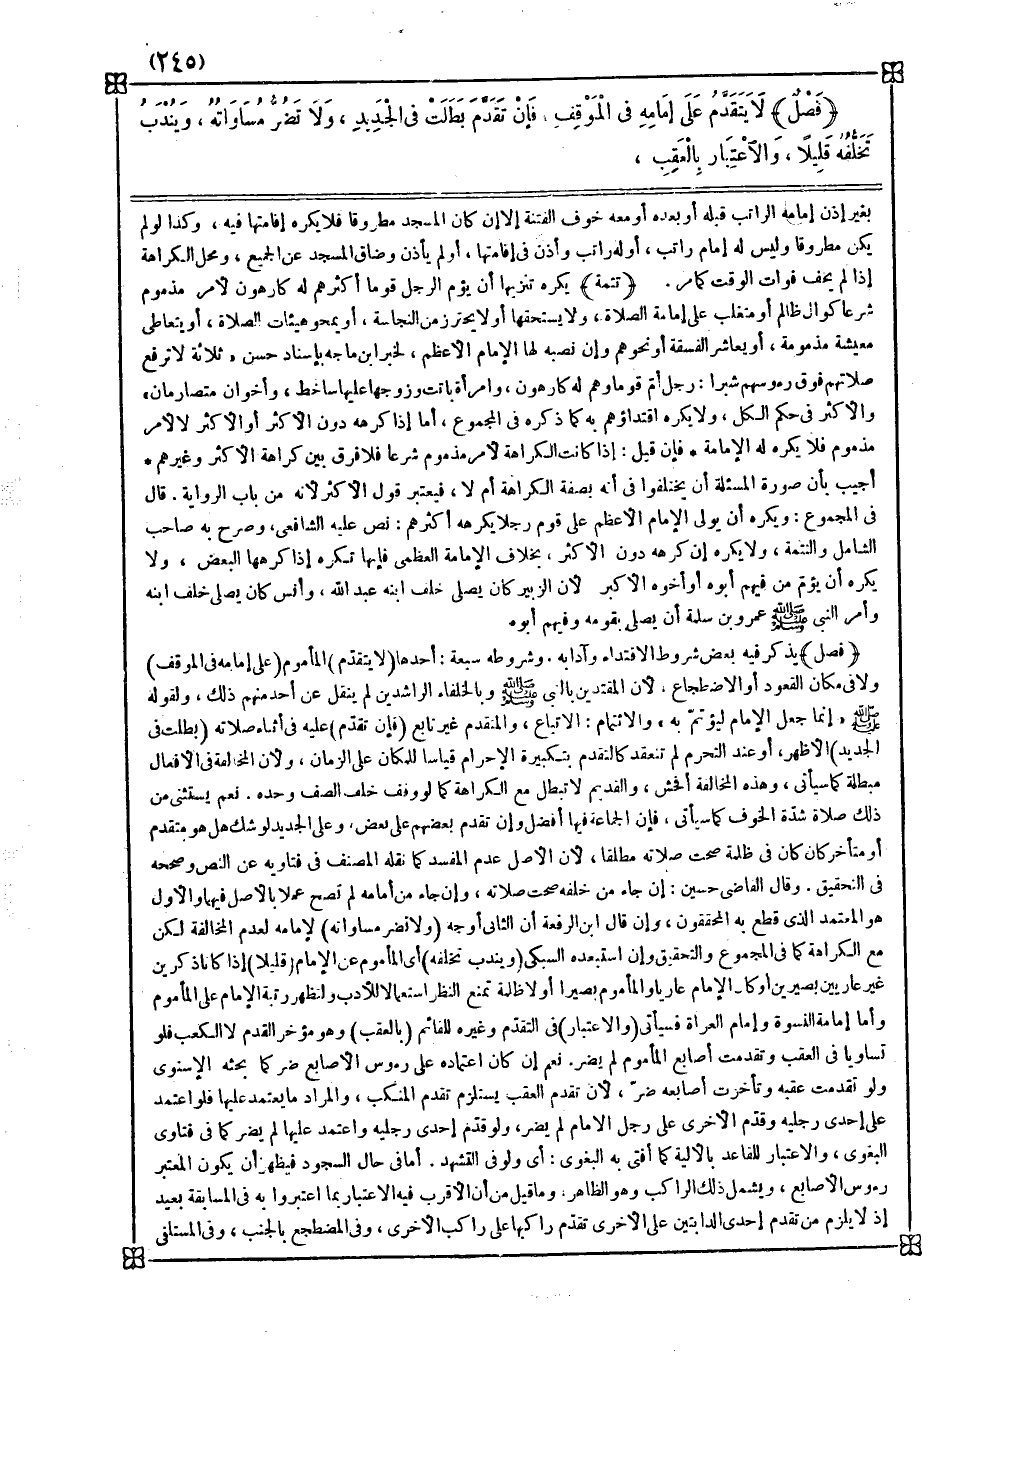 (٢٤٥)
﴿فَصْلٌ﴾ لَا يَتَقَدَّمُ عَلَى إِمَامِهِ فِى الْمَوْقِفِ، فَإِنْ تَقَدَّمَ بَطَلَتْ فِى الْجَدِيدِ، وَلَا تَضُرُّ مُسَاوَاتُهُ، وَيُنْدَبُ
تَخَلُّفُهُ قَلِيلًا، وَالْاعْتِبَار بِالْعَقِبِ،
بغير إذن إمامه الراتب قبله أو بعده أو معه خوف الفتنة إلا إن كان المسجد مطروقا فلا يكره إقامتها فيه، وكذا لو لم
يكن مطروقا وليس له إمام راتب، أوله راتب وأذن فى إقامتها، أو لم يأذن وضاق المسجد عن الجميع، ومحل الكراهة
إذا لم يخف فوات الوقت كما مر. ﴿تتمة﴾ يكره تنزيها أن يؤم الرجل قوما أكثرهم له كارهون لأمر مذموم
شرعا كوال ظالم أو متغلب على إمامة الصلاة، ولا يستحقها أو لا يحترز من النجاسة، أو يمحو هيئات الصلاة، أو يتعاطى
معيشة مذمومة، أو يعاشر الفسقة أو نحوهم وإن نصبه لها الإمام الأعظم، لخبر ابن ماجه بإسناد حسن «ثلاثة لا ترفع
صلاتهم فوق رءوسهم شبرا: رجل أم قوما وهم له كارهون، وامرأة باتت وزوجها عليها ساخط، وأخوان متصارمان»
والأكثر فى حكم الكل، ولا يكره اقتداؤهم به كما ذكره فى المجموع، أما إذا كرهه دون الأكثر أو الأكثر لا لأمر
مذموم فلا يكره له الإمامة * فإن قيل: إذا كانت الكراهة لأمر مذموم شرعا فلا فرق بين كراهة الأكثر وغيرهم *
أجيب بأن صورة المسئلة أن يختلفوا فى أنه بصفة الكراهة أم لا، فيعتبر قول الأكثر لأنه من باب الرواية. قال
فى المجموع: ويكره أن يولى الإمام الأعظم على قوم رجلا يكرهه أكثرهم: نص عليه الشافعى، وصرح به صاحب
الشامل والتتمة، ولا يكره إن كرهه دون الأكثر، بخلاف الإمامة العظمى فإنها تكره إذا كرهها البعض، ولا
يكره أن يؤم من فيهم أبوه أو أخوه الأكبر لأن الزبير كان يصلى خلف ابنه عبد الله، وأنس كان يصلى خلف ابنه
وأمر النبى ﷺ عمرو بن سلمة أن يصلى بقومه وفيهم أبوه
﴿فصل﴾ يذكر فيه بعض شروط الاقتداء وآدابه. وشروطه سبعة: أحدها (لا يتقدم) المأموم (على إمامه فى الموقف)
ولا فى مكان القعود أو الاضطجاع، لأن المقتدين بالنبى ﷺ وبالخلفاء الراشدين لم ينقل عن أحد منهم ذلك، ولقوله
ﷺ «إنما جعل الإمام ليؤتمّ به» والائتمام: الاتباع، والمتقدم غير تابع (فإن تقدّم) عليه فى أثناء صلاته (بطلت فى
الجديد) الأظهر، أو عند التحرم لم تنعقد كالتقدم بتكبيرة الإحرام قياسا للمكان على الزمان، ولأن المخالفة فى الأفعال
مبطلة كما سيأتى، وهذه المخالفة أفحش، والقديم لا تبطل مع الكراهة كما لو وقف خلف الصف وحده. نعم يستثنى من
ذلك صلاة شدّة الخوف كما سيأتى، فإن الجماعة فيها أفضل وإن تقدم بعضهم على بعض، وعلى الجديد لو شك هل هو متقدم
أو متأخر كان كان فى ظلمة صحت صلاته مطلقا، لأن الأصل عدم المفسد كما نقله المصنف فى فتاويه عن النص وصححه
فى التحقيق. وقال القاضى حسين: إن جاء من خلفه صحت صلاته، وإن جاء من أمامه لم تصح عملا بالأصل فيهما والأول
هو المعتمد الذى قطع به المحققون، وإن قال ابن الرفعة أن الثانى أوجه (ولا تضر مساواته) لإمامه لعدم المخالفة لكن
مع الكراهة كما فى المجموع والتحقيق وإن استبعده السبكى (ويندب تخلفه) أى المأموم عن الإمام (قليلا) إذا كانا ذكرين
غير عاريين بصيرين أو كان الإمام عاريا والمأموم بصيرا أو لا ظلمة تمنع النظر استعمالا للأدب ولتظهر رتبة الإمام على المأموم
وأما إمامة النسوة وإمام العراة فسيأتى (والاعتبار) فى التقدّم وغيره للقائم (بالعقب) وهو مؤخر القدم لا الكعب فلو
تساويا فى العقب وتقدمت أصابع المأموم لم يضر. نعم إن كان اعتماده على رءوس الأصابع ضر كما بحثه الإسنوى
ولو تقدمت عقبه وتأخرت أصابعه ضرّ، لأن تقدم العقب يستلزم تقدم المنكب، والمراد ما يعتمد عليها فلو اعتمد
على إحدى رجليه وقدّم الأخرى على رجل الإمام لم يضر، ولو قدّم إحدى رجليه واعتمد عليها لم يضر كما فى فتاوى
البغوى، والاعتبار للقاعد بالألية كما أفتى به البغوى: أى ولو فى التشهد. أما فى حال السجود فيظهر أن يكون المعتبر
رءوس الأصابع، ويشمل ذلك الراكب وهو الظاهر، وما قيل من أن الأقرب فيه الاعتبار بما اعتبروا به فى المسابقة بعيد
إذ لا يلزم من تقدم إحدى الدابتين على الأخرى تقدّم راكبها على راكب الأخرى، وفى المضطجع بالجنب، وفى المستلقى